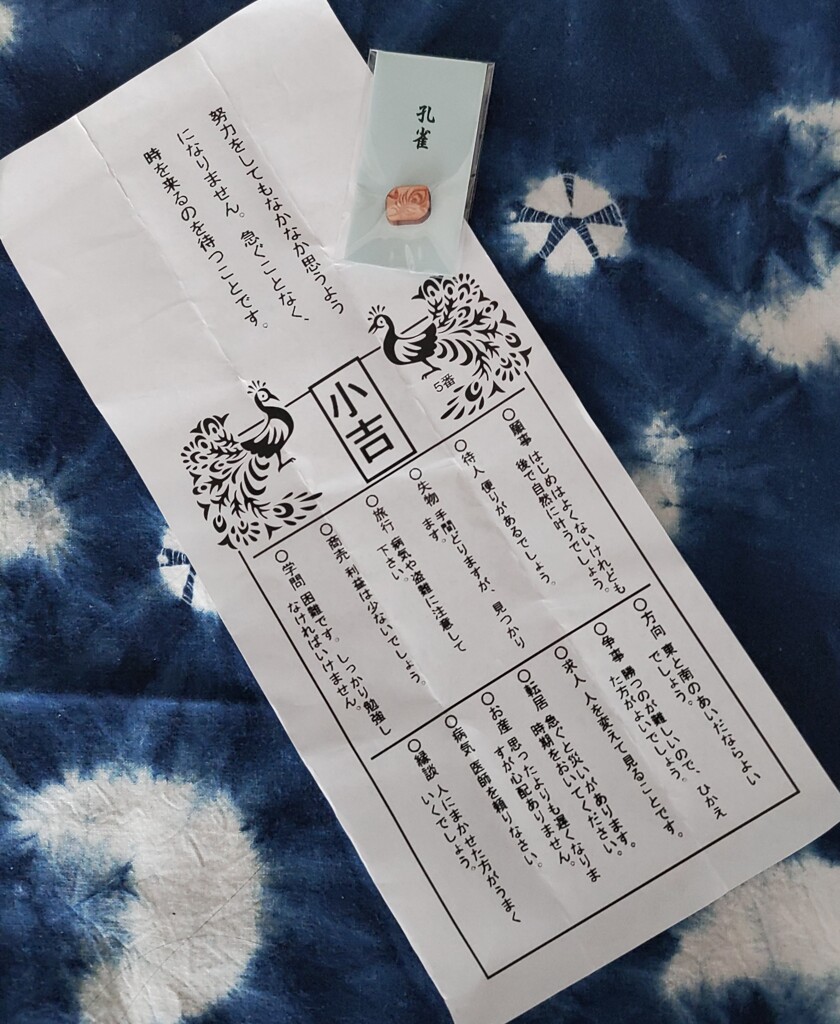 孔雀
努力をしてもなかなか思うよう
になりません。急ぐことなく、
時を来るのを待つことです。
5番
小吉
○願事 はじめはよくないけれども
後で自然に叶うでしょう。
○待人 便りがあるでしょう。
○失物 手間どりますが、見つかり
ます。
○旅行 病気や盗難に注意して
下さい。
○商売 利益は少ないでしょう。
○学問 困難です。しっかり勉強し
なければいけません。
○方向 東と南のあいだならよい
でしょう。
○争事 勝つのが難しいので、ひかえ
た方がよいでしょう。
○求人 人を変えて見ることです。
○転居 急ぐと災いがあります。
時期をおいてください。
○お産 思ったよりも遅くなりま
すが心配ありません。
○病気 医師を頼りなさい。
○縁談 人にまかせた方がうまく
いくでしょう。